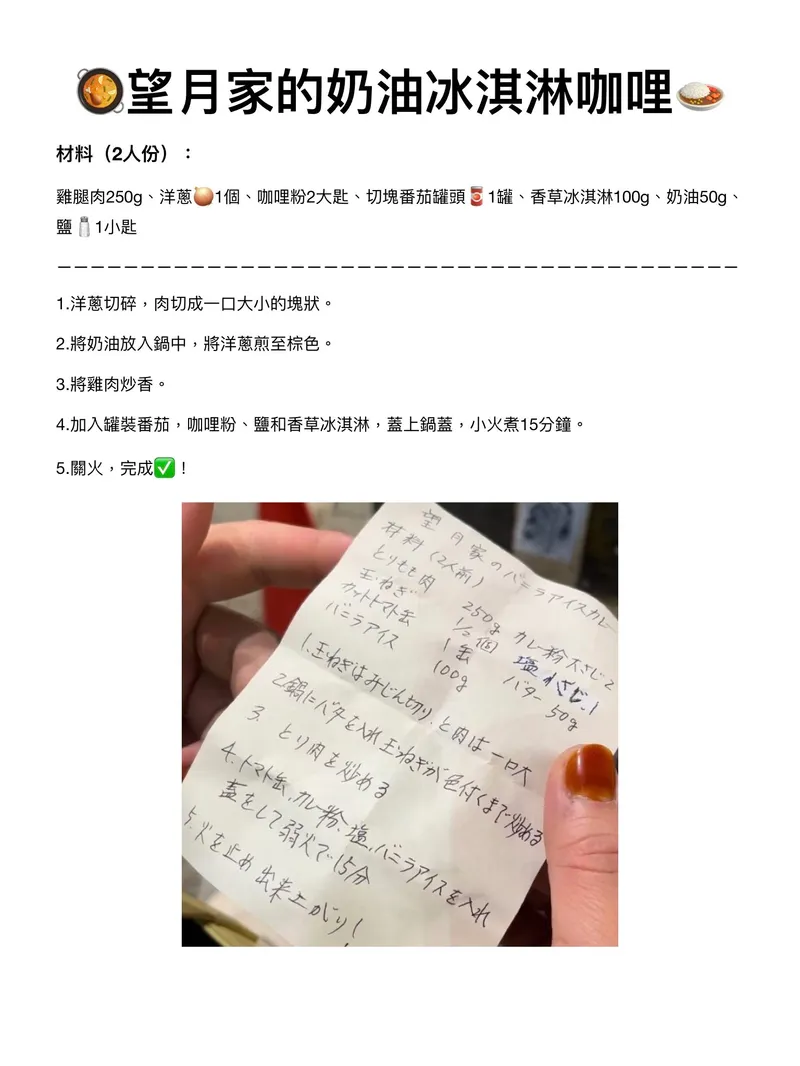 🥘望月家的奶油冰淇淋咖哩🍛
材料（2人份）：
雞腿肉250g、洋蔥🧅1個、咖哩粉2大匙、切塊番茄罐頭🥫1罐、香草冰淇淋100g、奶油50g、
鹽🧂1小匙
—————————————————————————————————————————
1.洋蔥切碎，肉切成一口大小的塊狀。
2.將奶油放入鍋中，將洋蔥煎至棕色。
3.將雞肉炒香。
4.加入罐裝番茄，咖哩粉、鹽和香草冰淇淋，蓋上鍋蓋，小火煮15分鐘。
5.關火，完成✅！
望月家のバニラアイスカレー
材料(2人前)
とりもも肉 250g カレー粉 大さじ2
玉ねぎ 1/2個 塩 小さじ1
カットトマト缶 1缶 バター 50g
バニラアイス 100g
1.玉ねぎはみじん切り、と肉は一口大
2.鍋にバタを入れ玉ねぎが色付くまで炒める
3. とり肉を炒める
4.トマト缶、カレー粉、塩、バニラアイスを入れ
蓋をして弱火で15分
5.火を止め出来上がり！